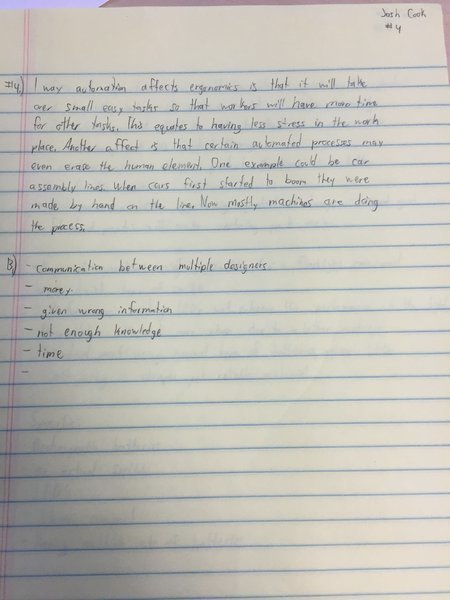 Josh Cook
#4
#4) 1 way automation affects ergonomics is that it will take
over small easy tasks so that workers will have more time
for other tasks. This equates to having less stress in the work
place. Another affect is that certain automated processes may
even erase the human element. One example could be car
assembly lines. When cars first started to boom they were
made by hand on the line. Now mostly machines are doing
the process.
B) - communication between multiple designers
- money.
- given wrong information
- not enough knowledge
- time
-